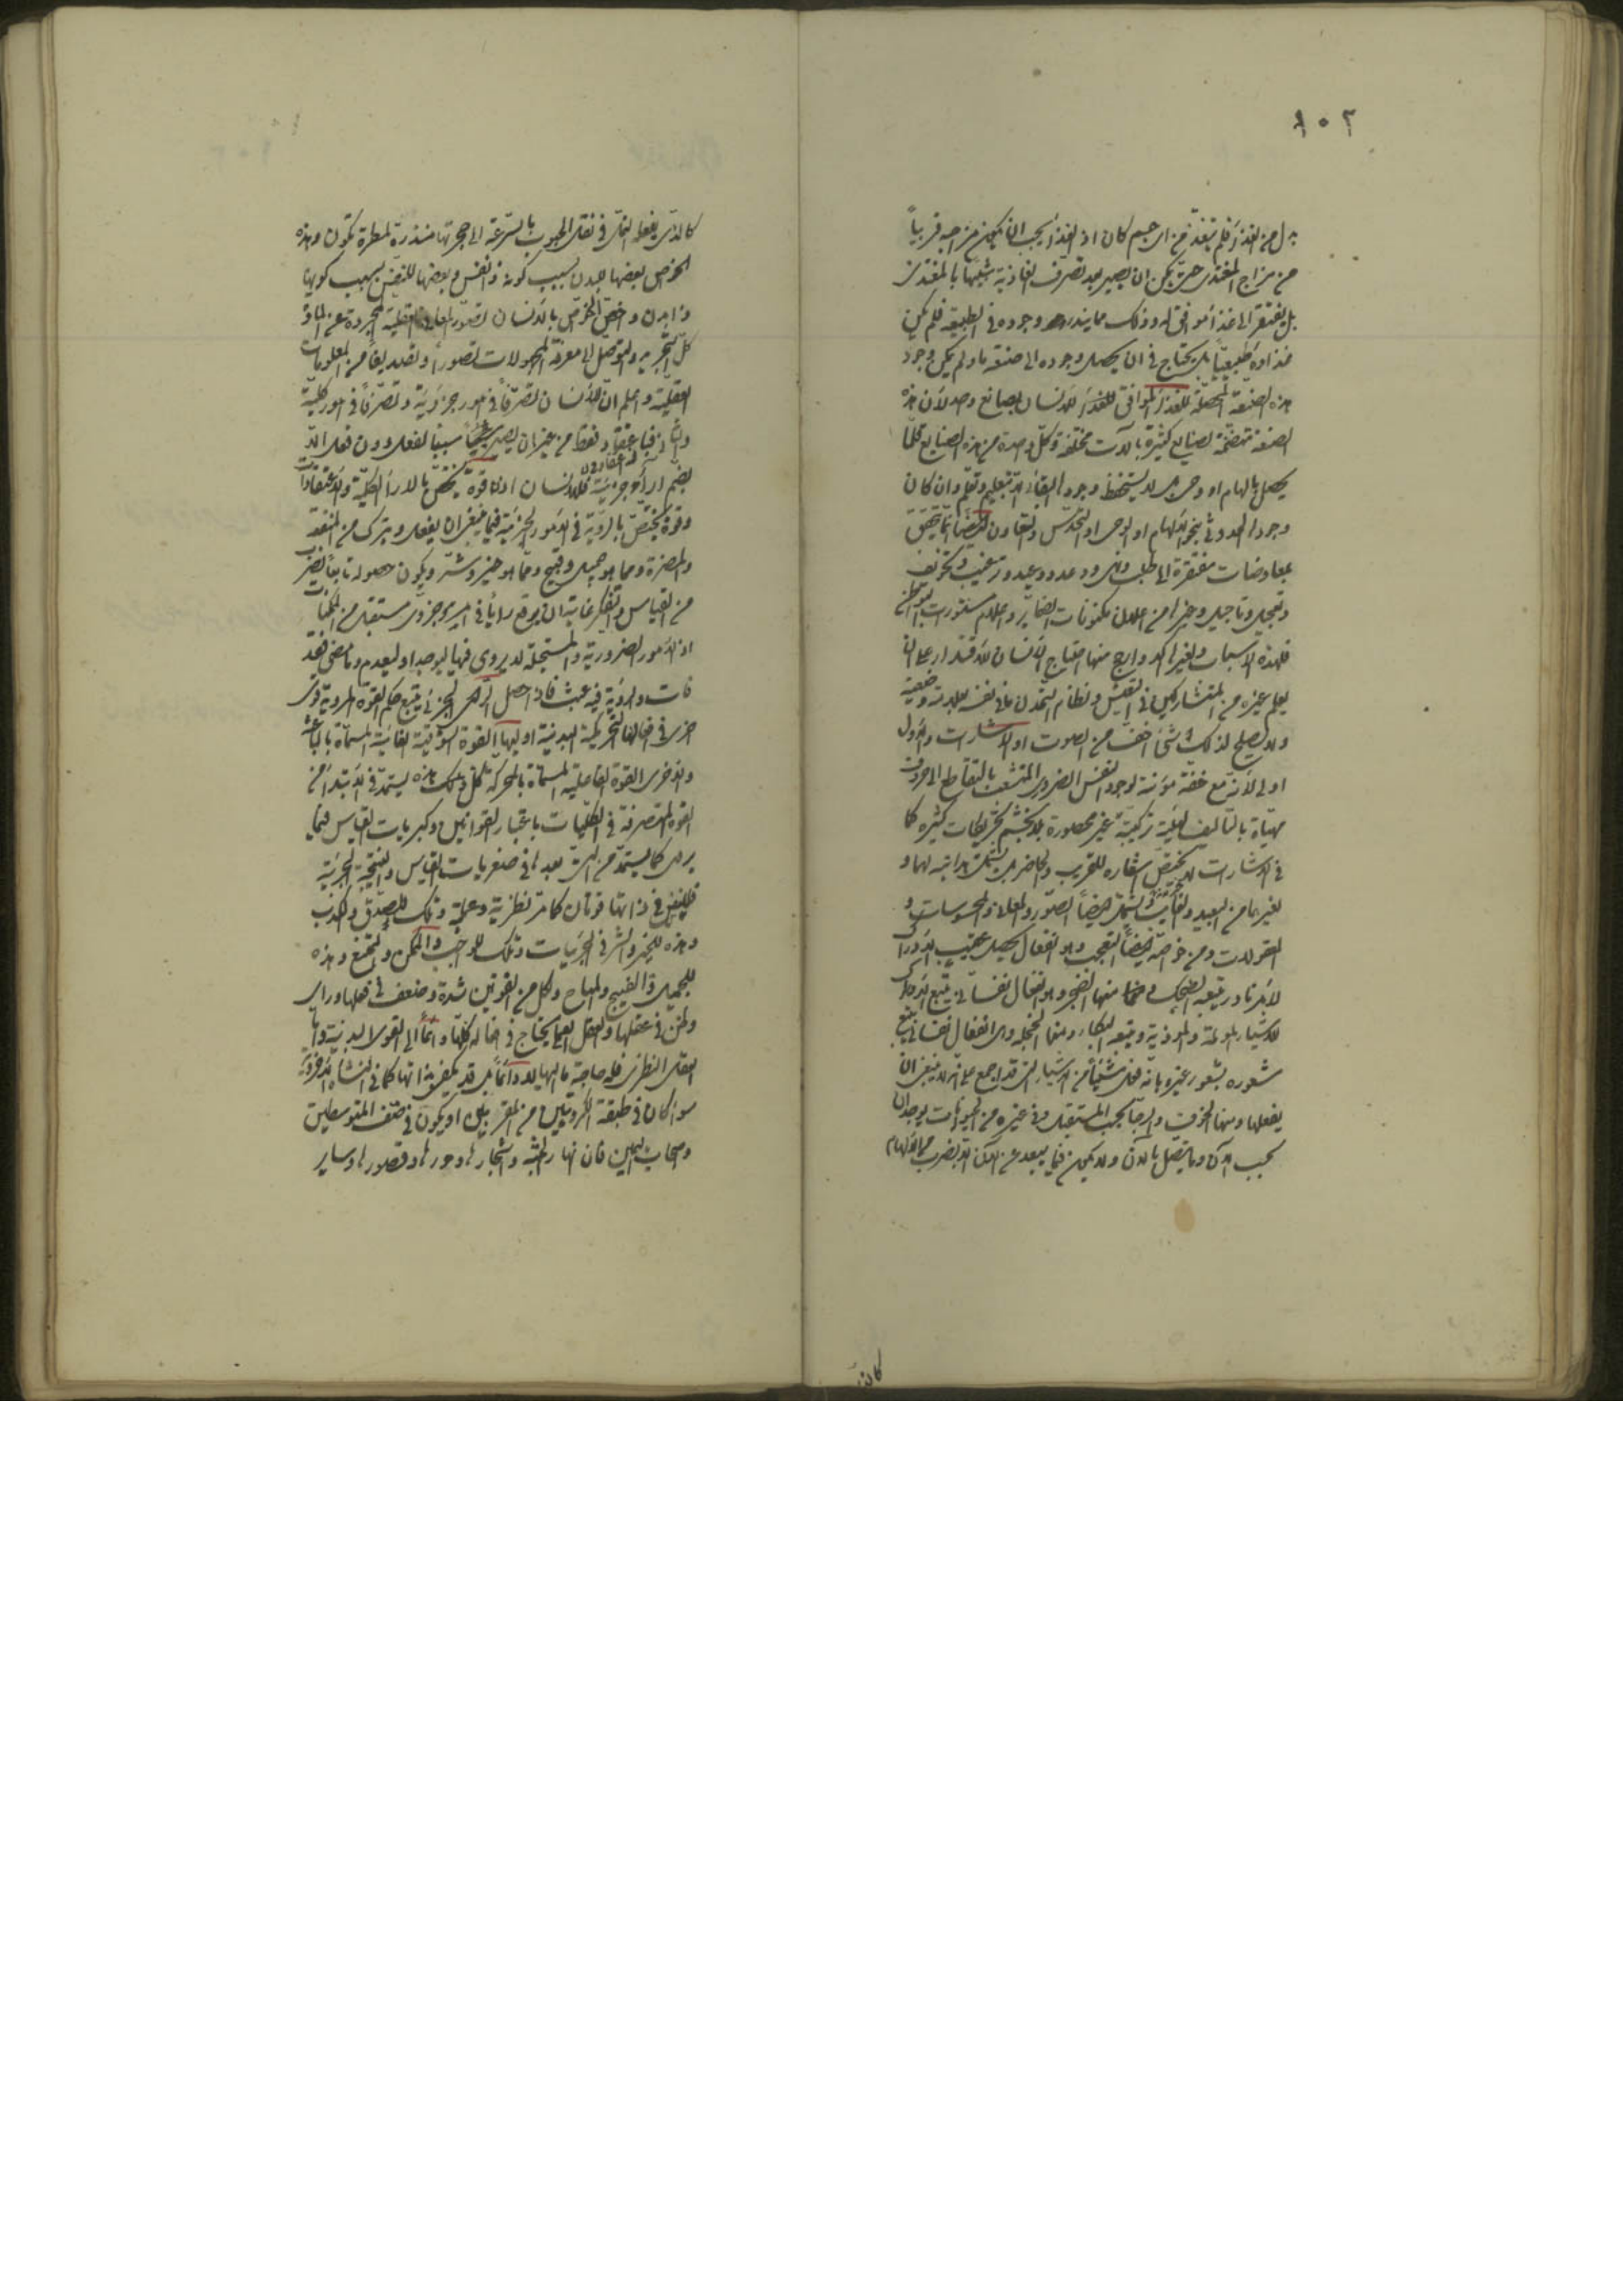 ١٠٢
بدل من الغذاء فلم يتغذ من اي جسم كان اذ الغذاء يجب ان يكون مزاجه قريباً
من مزاج المغتذي حتى يمكن ان يصير بعد تصرف الغاذية شبيها بالمغتذي
بل يفتقر الى غذاء موافق له وذلك مما يندر وجوده في الطبيعة فلم يكن
غذاؤه طبيعيا بل يحتاج في ان يحصل وجوده الى صنعة ما ولم يكن وجود
هذه الصنعة المحصلة للغذاء الموافق للغذاء للانسان بصانع واحد لان هذه
الصنعة متضمنة لصنايع كثيرة بآلات مختلفة وكل واحدة من هذه الصنايع قلما
يحصل بالهام او وحي بل لا يستحفظ وجود البقاء الا بتعليم وتعلم وان كان
وجود الحدوث بنحو الالهام او الوحي او التحدس والتعاون ايضا انما يتحقق
بمعاوضات مفتقرة الى طلب ونهي ووعد ووعيد وترغيب وتخويف
وتعجيل وتاجيل وغيرها من اعلان مكنونات الضماير واعلام مستورات البواطن
فلهذه الاسباب ولغيرها الد واريح منها احتياج الانسان لان قتدار على ان
يعلم غيره من المتشاركين في التعيش ونظام التمدن ما في نفسه بعلامة وضعية
ولا يصلح لذلك شئ اخف من الصوت او الاشارات والاول
اولى لانه مع خفة مؤنته لوجود النفس الضروري المتشعب بالتقاطع الى حروف
مهيأة بالتاليف لهيئة تركيبية غير محصورة بلا تجشم تحريكات كثيرة كما
في الاشارات لا يختص اشعاره للقريب والحاضر بل يشمل هدايته لهما و
لغيرهما من البعيد والغايب ويشمل ايضاً الصور والمعاني والمحسوسات و
المعقولات ومن خواصه ايضاً التعجب وهو انفعال يحصل عقيب ادراك
لامر نادر ويتبعه الضحك ومنها الضجر وهو انفعال نفساني يتبع ادراك
للاشياء المؤلمة والموذية ويتبعه البكاء ومنها الخجلة وهي انفعال نفساني يتبع
شعوره بشعور غيره بانه فعل شيئاً من الاشياء التي قد اجمع على انه لا ينبغي ان
يفعلها ومنها الخوف والرجاء بحسب المستقبل وفي غيره من الحيوانات يوجدان
بحسب الآن وما يتصل بالآن ولا يكون فيما يبعد عن الآن الا بضرب من الالهام
كالذي
كالذي يفعله النمل في نقل الحبوب بالسرعة الى جحرتها منذرة لمطر تكون وهذه
الخواص بعضها للبدن بسبب كونه ذا نفس وبعضها للنفس بسبب كونها
ذا بدن واخص الخواص بالانسان تصور المعاني العقلية المجردة عن المادة
كل التجريد والتوصل الى معرفة المجهولات تصوراً وتصديقا من المعلومات
العقلية واعلم ان للانسان تصرفاً في امور جزئية وتصرفا في امور كلية
والثاني فيه اعتقاد فقط من غير ان يصير سببا لفعل دون فعل الا
بضم آراء جزئية فللانسان اذا قوة تختص بالآراء الكلية والاعتقادات
وقوة تختص بالروية في الامور الجزئية فيما ينبغي ان يفعل ويترك من المنفعة
والمضرة ومما هو جميل وقبيح ومما هو خير وشر ويكون حصوله تابعاً لضرب
من القياس والتفكر غايته ان يوقع رأياً في امر جزوي مستقبل من الممكنات
اذ الامور الضرورية والمستحيلة لا يروى فيها ليوجد او ليعدم وما مضى فقد
فات والروية فيه عبث فاذا حصل الرأي الجزئي يتبع حكم القوة المروية قوى
اخرى في افعالها التحريكية البدنية اوليها القوة الشوقية الغائية المسماة بالباعثة
والاخرى القوة الفاعلية المسماة بالمحركة كل تلك هذه يستمد في الابتداء من
القوة المتصرفة في الكليات باعتبار القوانين وكبريات القياس فيما
يروى كما يستمد من التي بعدها في صغريات القياس والنتيجة الجزئية
فللنفس في ذاتها قوتان كما مر نظرية وعملية وتلك للصدق والكذب
وهذه للخير والشر في الجزئيات وتلك للواجب والممكن والممتنع وهذه
للجميل والقبيح والمباح ولكل من القوتين شدة وضعف في فعلها ورأي
وظن في عقلها والعقل العملي يحتاج في افعاله كلها دائما الى القوى البدنية واما
العقل النظري فله حاجة ما اليها لا دائماً بل قد يكتفي بذاتها كما في النشأة الاخروية
سواء كان في طبقة الكروبيين من المقربين او يكون في صنف المتوسطين
واصحاب اليمين فان انهار الجنة واشجارها وحورها وقصورها وساير